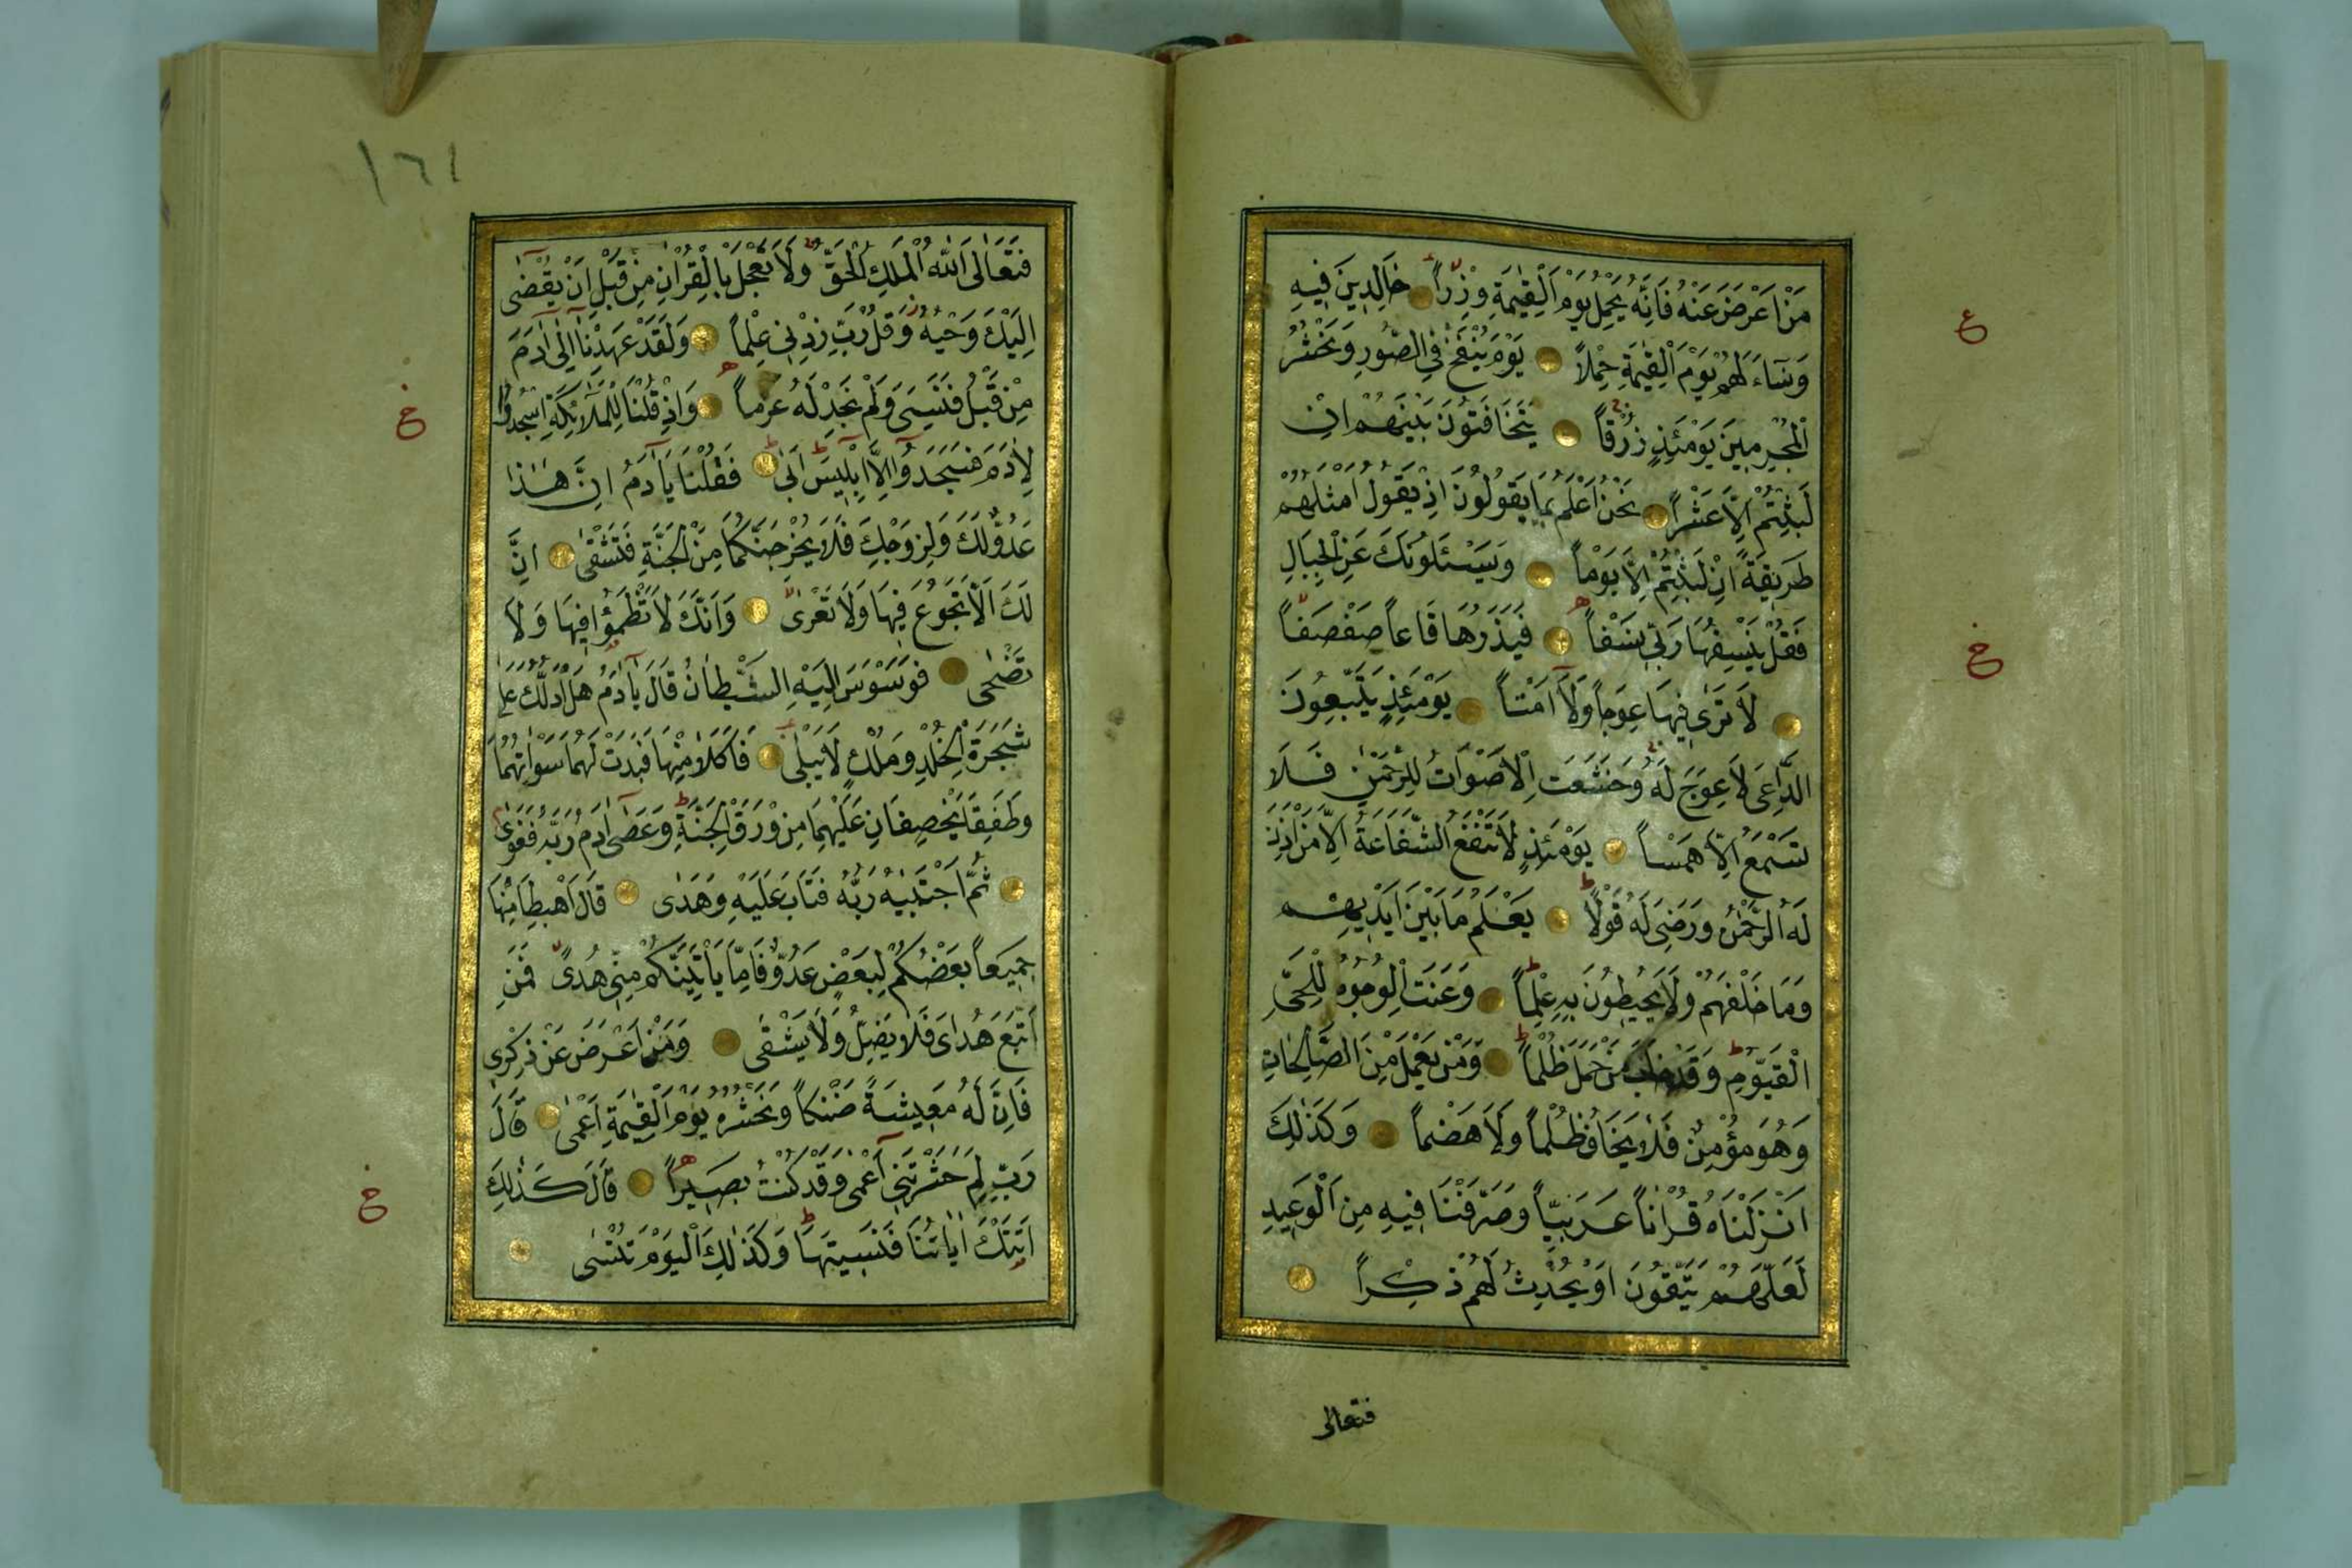 مَنْ اَعْرَضَ عَنْهُ فَاِنَّهُ يَحْمِلُ يَوْمَ الْقِيٰمَةِ وِزْرًا خَالِدِينَ فِيهِ
وَسَاءَ لَهُمْ يَوْمَ الْقِيٰمَةِ حِمْلًا يَوْمَ يُنْفَخُ فِي الصُّورِ وَنَحْشُرُ
الْمُجْرِمِينَ يَوْمَئِذٍ زُرْقًا يَتَخَافَتُونَ بَيْنَهُمْ اِنْ
لَبِثْتُمْ اِلَّا عَشْرًا نَحْنُ اَعْلَمُ بِمَا يَقُولُونَ اِذْ يَقُولُ اَمْثَلُهُمْ
طَرِيقَةً اِنْ لَبِثْتُمْ اِلَّا يَوْمًا وَيَسْئَلُونَكَ عَنِ الْجِبَالِ
فَقُلْ يَنْسِفُهَا رَبِّي نَسْفًا فَيَذَرُهَا قَاعًا صَفْصَفًا
لَا تَرٰى فِيهَا عِوَجًا وَلَا اَمْتًا يَوْمَئِذٍ يَتَّبِعُونَ
الدَّاعِيَ لَا عِوَجَ لَهُ وَخَشَعَتِ الْاَصْوَاتُ لِلرَّحْمٰنِ فَلَا
تَسْمَعُ اِلَّا هَمْسًا يَوْمَئِذٍ لَا تَنْفَعُ الشَّفَاعَةُ اِلَّا مَنْ اَذِنَ
لَهُ الرَّحْمٰنُ وَرَضِيَ لَهُ قَوْلًا يَعْلَمُ مَا بَيْنَ اَيْدِيهِمْ
وَمَا خَلْفَهُمْ وَلَا يُحِيطُونَ بِهِ عِلْمًا وَعَنَتِ الْوُجُوهُ لِلْحَيِّ
الْقَيُّومِ وَقَدْ خَابَ مَنْ حَمَلَ ظُلْمًا وَمَنْ يَعْمَلْ مِنَ الصَّالِحَاتِ
وَهُوَ مُؤْمِنٌ فَلَا يَخَافُ ظُلْمًا وَلَا هَضْمًا وَكَذٰلِكَ
اَنْزَلْنَاهُ قُرْاٰنًا عَرَبِيًّا وَصَرَّفْنَا فِيهِ مِنَ الْوَعِيدِ
لَعَلَّهُمْ يَتَّقُونَ اَوْ يُحْدِثُ لَهُمْ ذِكْرًا
فتعالى
ع
خ
١٦١
فَتَعَالَى اللّٰهُ الْمَلِكُ الْحَقُّ وَلَا تَعْجَلْ بِالْقُرْاٰنِ مِنْ قَبْلِ اَنْ يُقْضٰى
اِلَيْكَ وَحْيُهُ وَقُلْ رَبِّ زِدْنِي عِلْمًا وَلَقَدْ عَهِدْنَا اِلٰى اٰدَمَ
مِنْ قَبْلُ فَنَسِيَ وَلَمْ نَجِدْ لَهُ عَزْمًا وَاِذْ قُلْنَا لِلْمَلٰائِكَةِ اسْجُدُوا
لِاٰدَمَ فَسَجَدُوا اِلَّا اِبْلِيسَ اَبٰى فَقُلْنَا يَا اٰدَمُ اِنَّ هٰذَا
عَدُوٌّ لَكَ وَلِزَوْجِكَ فَلَا يُخْرِجَنَّكُمَا مِنَ الْجَنَّةِ فَتَشْقٰى اِنَّ
لَكَ اَلَّا تَجُوعَ فِيهَا وَلَا تَعْرٰى وَاَنَّكَ لَا تَظْمَؤُا فِيهَا وَلَا
تَضْحٰى فَوَسْوَسَ اِلَيْهِ الشَّيْطَانُ قَالَ يَا اٰدَمُ هَلْ اَدُلُّكَ عَلٰى
شَجَرَةِ الْخُلْدِ وَمُلْكٍ لَا يَبْلٰى فَاَكَلَا مِنْهَا فَبَدَتْ لَهُمَا سَوْاٰتُهُمَا
وَطَفِقَا يَخْصِفَانِ عَلَيْهِمَا مِنْ وَرَقِ الْجَنَّةِ وَعَصٰى اٰدَمُ رَبَّهُ فَغَوٰى
ثُمَّ اجْتَبٰيهُ رَبُّهُ فَتَابَ عَلَيْهِ وَهَدٰى قَالَ اهْبِطَا مِنْهَا
جَمِيعًا بَعْضُكُمْ لِبَعْضٍ عَدُوٌّ فَاِمَّا يَأْتِيَنَّكُمْ مِنِّي هُدًى فَمَنِ
اتَّبَعَ هُدَايَ فَلَا يَضِلُّ وَلَا يَشْقٰى وَمَنْ اَعْرَضَ عَنْ ذِكْرِي
فَاِنَّ لَهُ مَعِيشَةً ضَنْكًا وَنَحْشُرُهُ يَوْمَ الْقِيٰمَةِ اَعْمٰى قَالَ
رَبِّ لِمَ حَشَرْتَنِي اَعْمٰى وَقَدْ كُنْتُ بَصِيرًا قَالَ كَذٰلِكَ
اَتَتْكَ اٰيَاتُنَا فَنَسِيتَهَا وَكَذٰلِكَ الْيَوْمَ تُنْسٰى
خ
خ